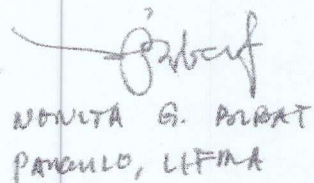 NONITA G. ALBAT
PANGULO, LIFMA